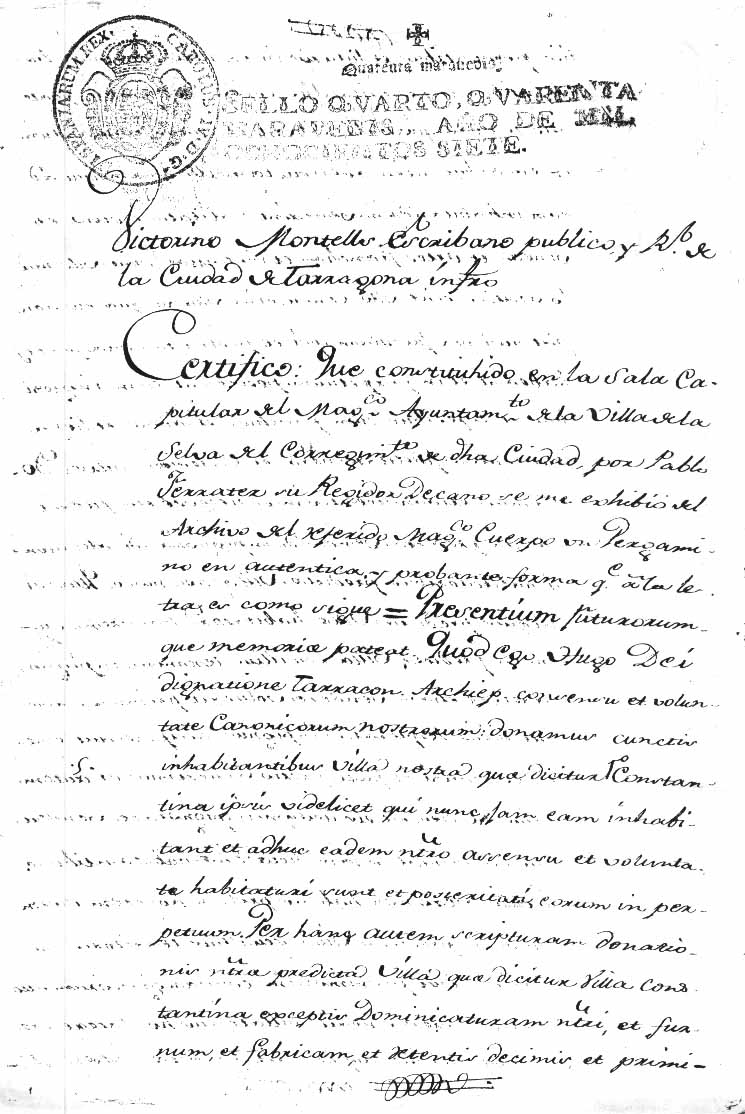 HISPANIARUM REX. CAROLUS IV. D. G.
Quarenta maravedis
SELLO QVARTO, QVARENTA
MARAVEDIS, AÑO DE MIL
OCHOCIENTOS SIETE.
Victorino Montells Escribano publico, y Rl. de
la Ciudad de Tarragona infro
Certifico: Que constituhido en la Sala Ca-
pitular del Magco Ayuntamto de la Villa de la
Selva del Corregimto de dha Ciudad, por Pablo
Ferrater su Regidor Decano se me exhibió del
Archivo del referido Magco Cuerpo un Pergami-
no en autentica y probante forma qe â la le-
tra es como sigue = Presentium futurorum-
que memoriæ pateat Quod Ego Hugo Dei
dignatione Tarracon. Archiep. consensu et volun-
tate Canonicorum nostrorum: donamus cunctis
inhabitantibus Villa nostra quæ dicitur Constan-
tina ipsis videlicet qui nunc jam eam inhabi-
tant et adhuc eadem ntro assensu et volunta-
te habitaturi sunt et posteritati eorum in per-
petuum. Per hanc autem scripturam donatio-
nis ntræ predicta Villa quæ dicitur Villa Cons-
tantina exceptis Dominicaturam ntri, et fur-
num, et fabricam, et detentis decimis et primi-